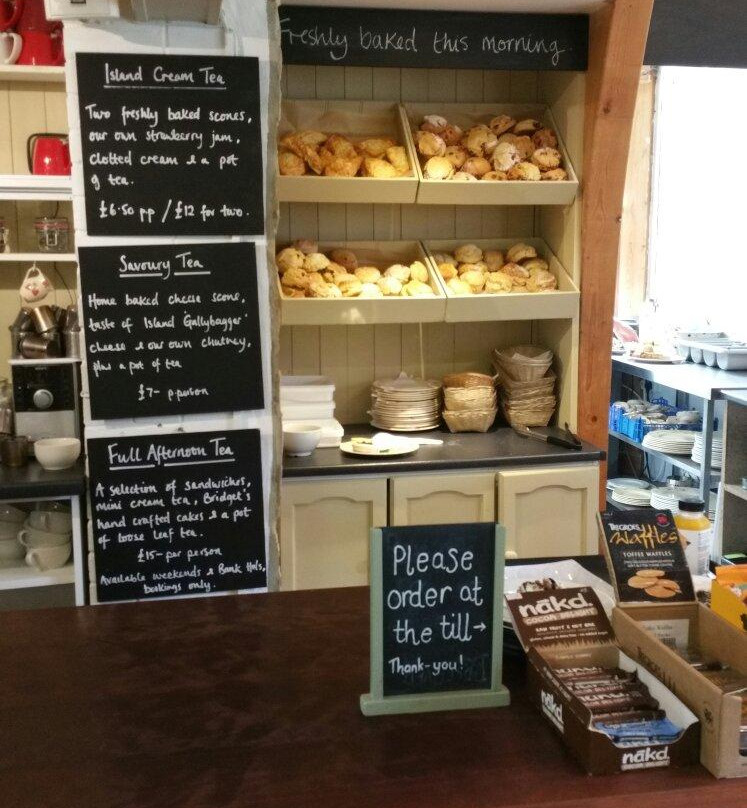 Freshly baked this morning.
Island Cream Tea
Two freshly baked scones,
our own strawberry jam,
clotted cream & a pot
of tea.
£6.50 pp / £12 for two.
Savoury Tea
Home baked cheese scone,
taste of Island 'Gallybagger'
cheese & our own chutney,
plus a pot of tea
£7- p.person
Full Afternoon Tea
A selection of sandwiches,
mini cream tea, Bridget's
hand crafted cakes & a pot
of loose leaf tea.
£15- per person
Available weekends & Bank Hols,
bookings only.
Please
order at
the till→
Thank-you!
nākd.
COCOA DELIGHT
RAW FRUIT & NUT BAR
nākd
nākd
COCOA DELIGHT
Waffles
TOFFEE WAFFLES